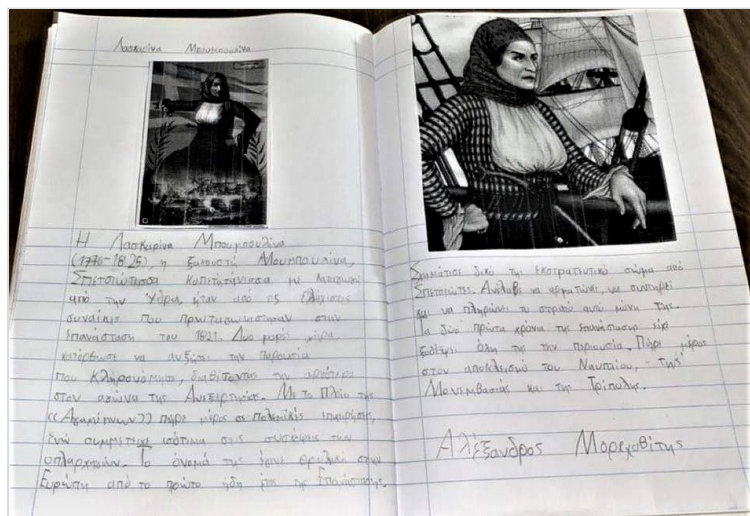 Λασκαρίνα Μπουμπουλίνα
Η Λασκαρίνα Μπουμπουλίνα
(1776-1825), η ξακουστή Μπουμπουλίνα,
Σπετσιώτισσα Καπετάνισσα με καταγωγή
από την Ύδρα, ήταν από τις ελάχιστες
γυναίκες που πρωταγωνίστησαν στην
Επανάσταση του 1821. Δυο φορές χήρα
κατόρθωσε να αυξήσει την περιουσία
που Κληρονόμησε, διαθέτοντας την αργότερα
στον αγώνα της Ανεξαρτησίας. Με το Πλοίο της
((Αγαμέμνων)) πήρε μέρος σε πολεμικές επιχειρήσεις,
ενώ συμμετείχε ισότιμα στις συσκέψεις των
οπλαρχηγών. Το όνομά της έγινε θρυλικό στην
Ευρώπη από το πρώτο ήδη έτος της Επανάστασης.
Σχημάτισε δικό της εκστρατευτικό σώμα από
Σπετσιώτες. Ανέλαβε να αρματώνει, να συντηρεί
και να πληρώνει το στρατό αυτό μόνη της.
Τα δύο πρώτα χρόνια της επανάστασης είχε
ξοδέψει όλη της την περιουσία. Πήρε μέρος
στον αποκλεισμό του Ναυπλίου, της
Μονεμβασιάς και της Τρίπολης.
Αλέξανδρος